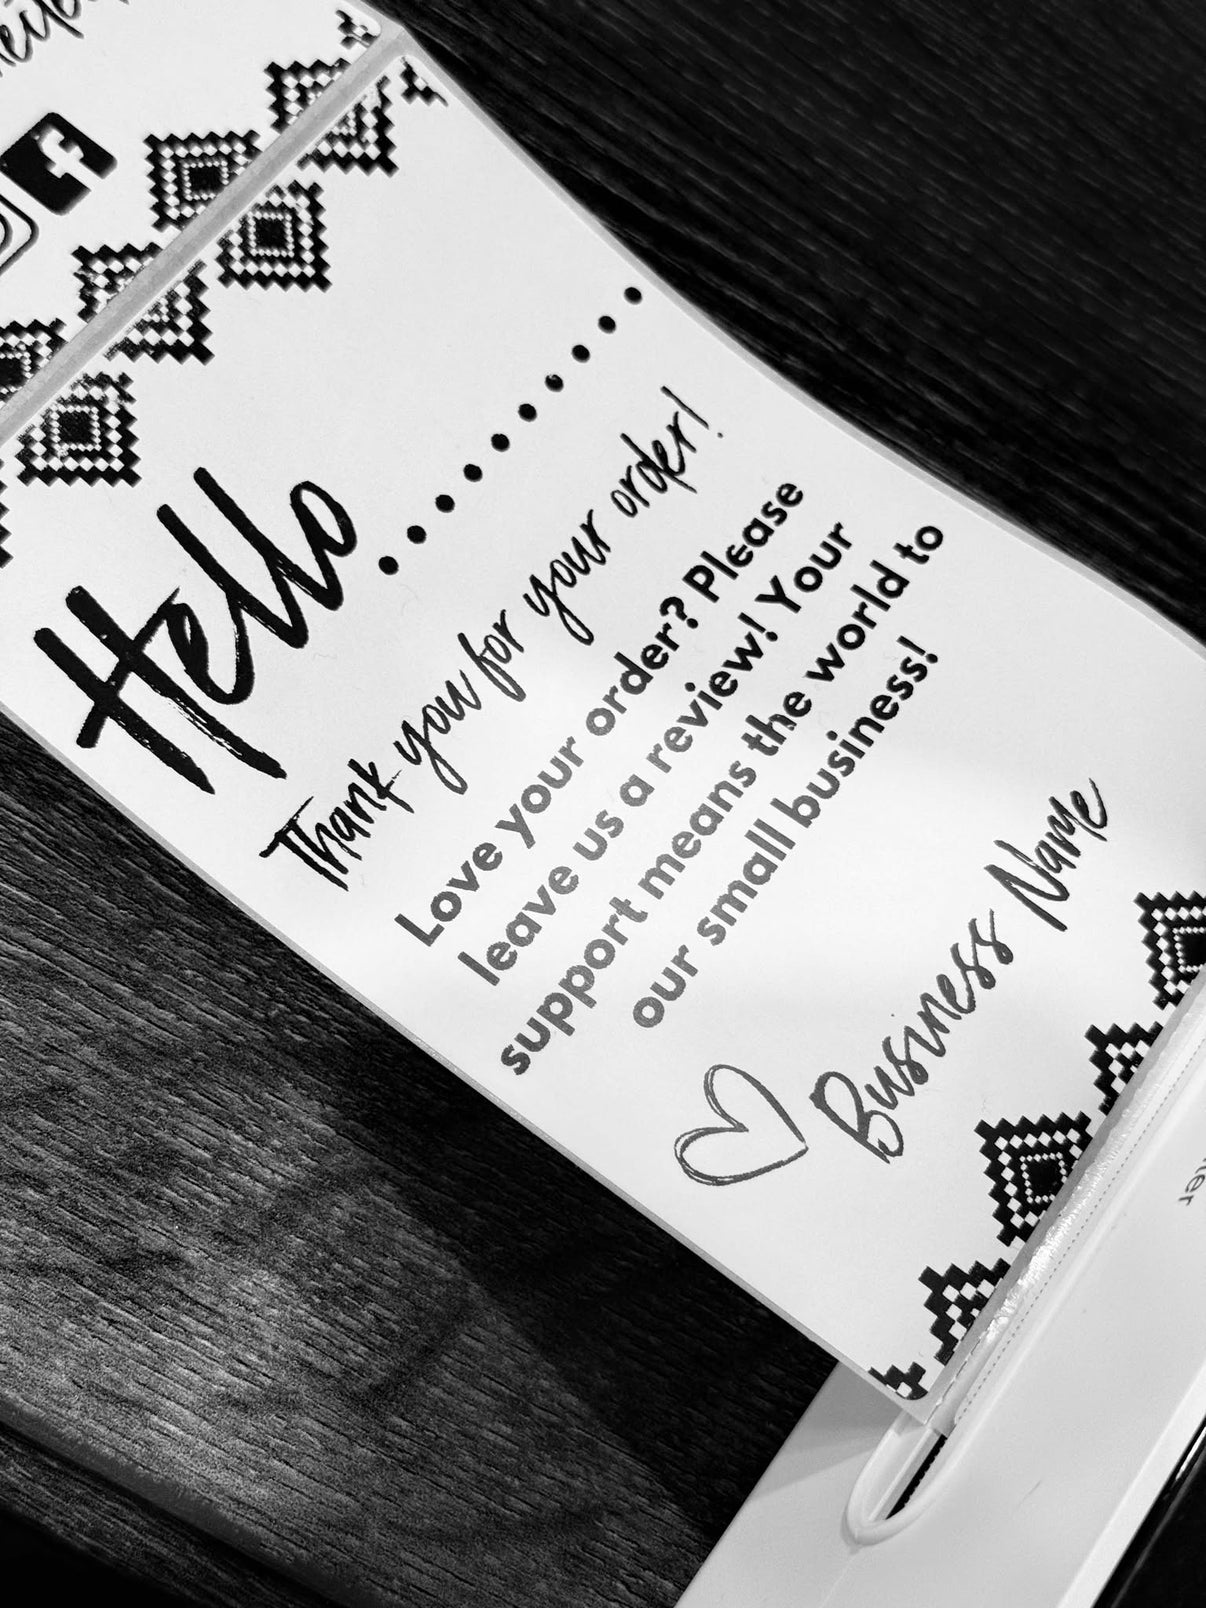 Hello
Thank you for your order!
Love your order? Please
leave us a review! Your
support means the world to
our small business!
Business Name